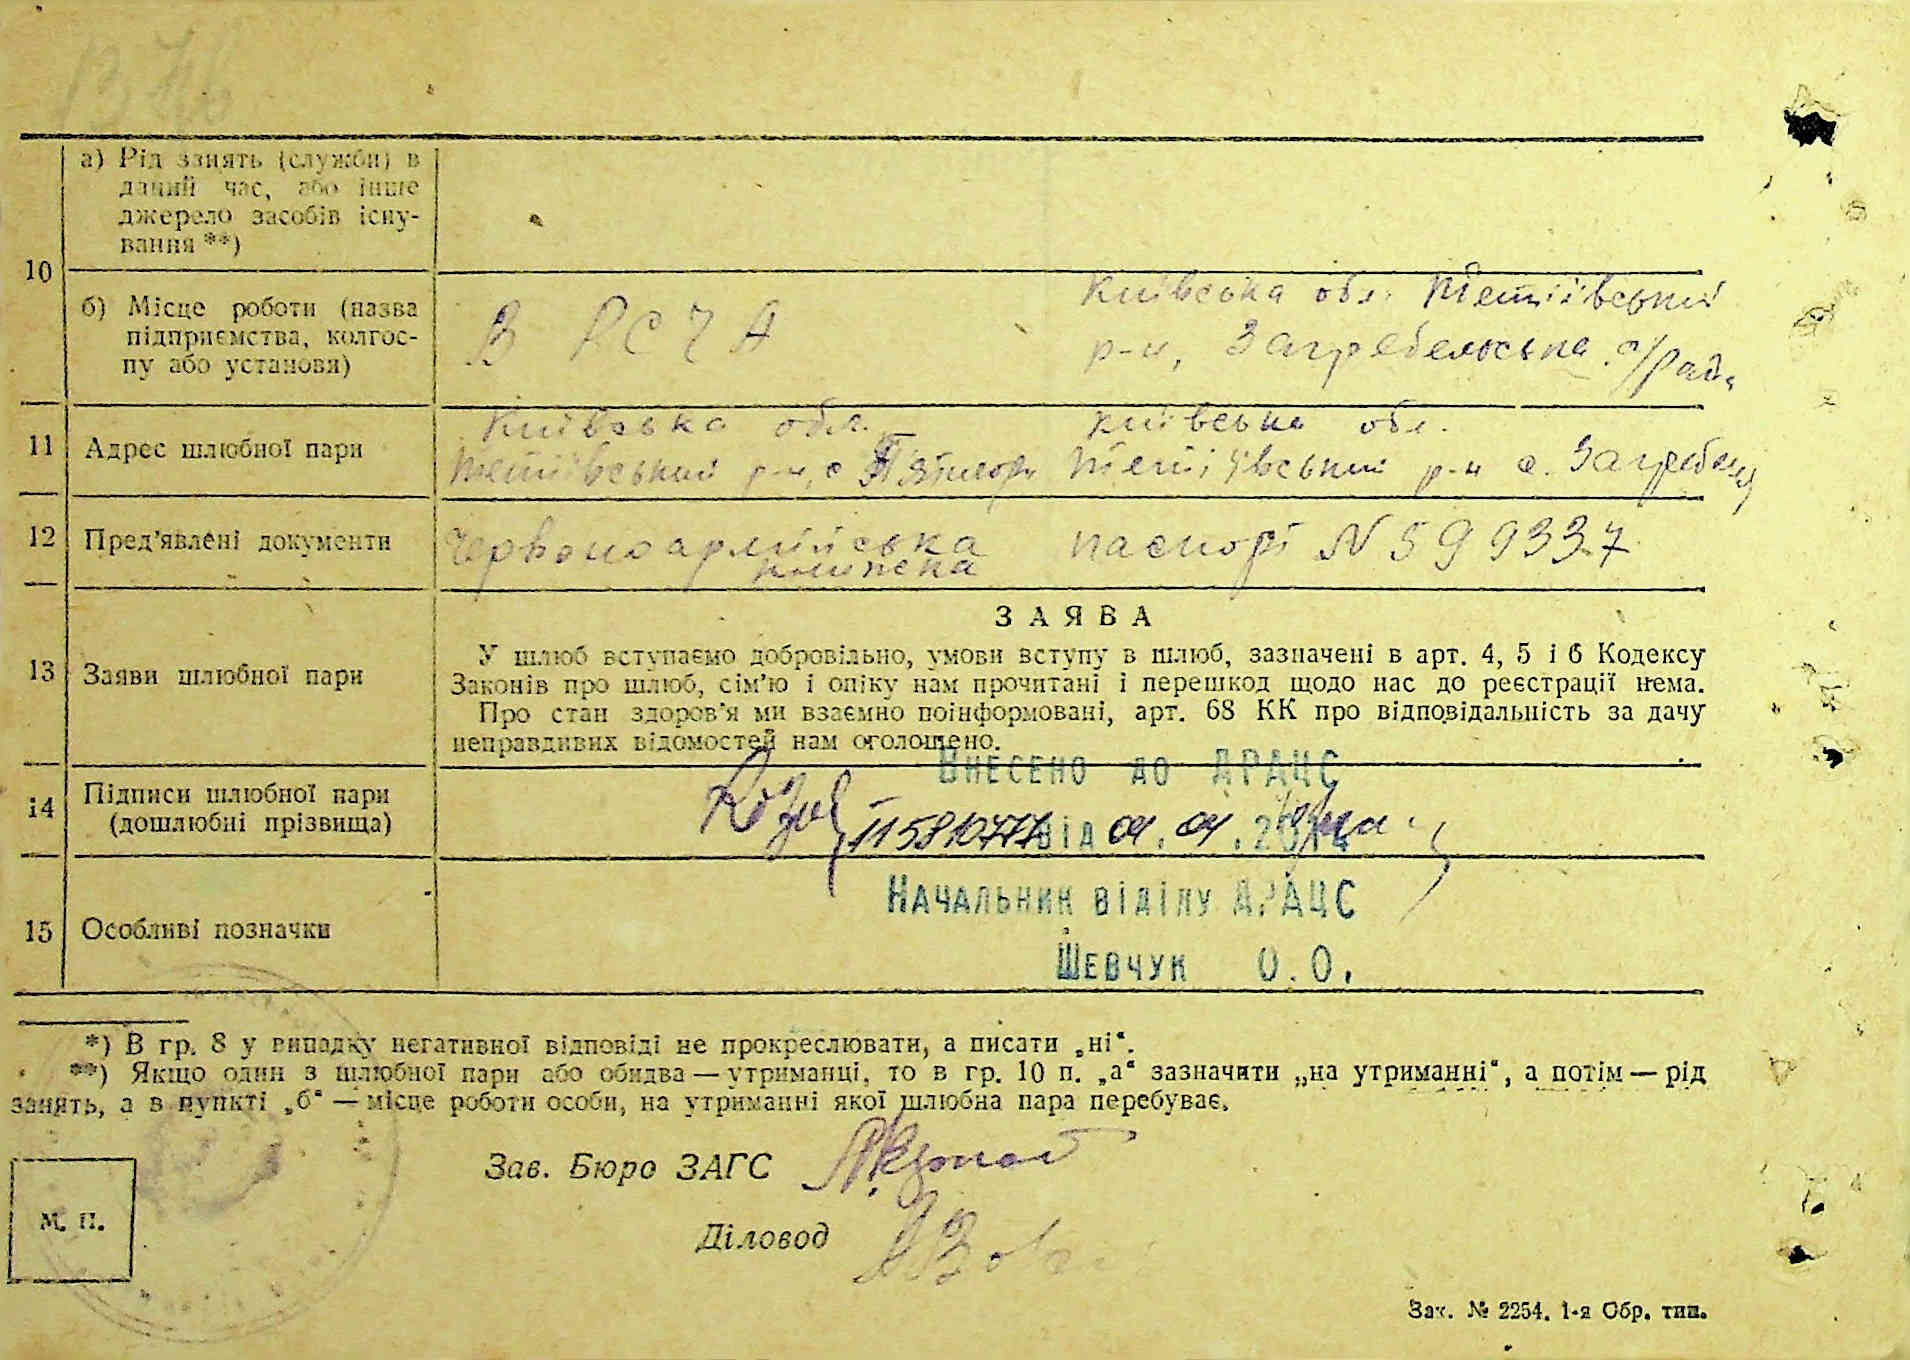 10
а) Рід занять (служби) в
даний час, або інше
джерело засобів існу-
вання **)
б) Місце роботи (назва
підприємства, колгос-
пу або установи)
В РСЧА
Київська обл. Тетіївський
р-н, Загребельська с/Рада
11
Адрес шлюбної пари
Київська обл.
Тетіївський р-н, с
Київська обл.
Тетіївський р-н с.
12
Пред'явлені документи
Червоноармійська
книжка
паспорт N 599337
13
Заяви шлюбної пари
ЗАЯВА
У шлюб вступаємо добровільно, умови вступу в шлюб, зазначені в арт. 4, 5 і 6 Кодексу
Законів про шлюб, сім'ю і опіку нам прочитані і перешкод щодо нас до реєстрації нема.
Про стан здоров'я ми взаємно поінформовані, арт. 68 КК про відповідальність за дачу
неправдивих відомостей нам оголошено.
14
Підписи шлюбної пари
(дошлюбні прізвища)
Внесено до ДРАЦС
від 04.04.2014
15
Особливі позначки
Начальник відділу ДРАЦС
Шевчук О.О.
*) В гр. 8 у випадку негативної відповіді не прокреслювати, а писати „ні“.
**) Якщо один з шлюбної пари або обидва — утриманці, то в гр. 10 п. „а“ зазначити „на утриманні“, а потім — рід
занять, а в пункті „б“ — місце роботи особи, на утриманні якої шлюбна пара перебуває.
Зав. Бюро ЗАГС
Діловод
М. П.
Зак. № 2254. 1-я Обр. тип.